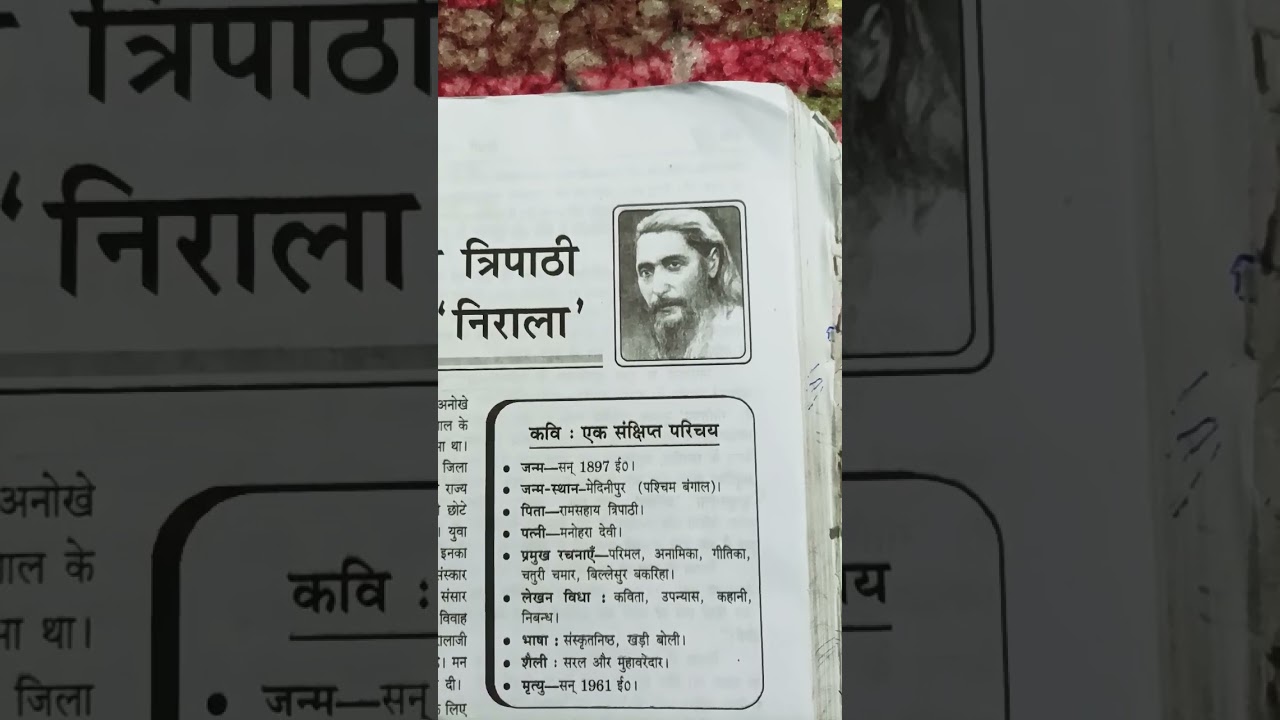 त्रिपाठी
‘निराला’
अनोखे
के
था।
जिला
राज्य
छोटे
युवा
इनका
संसार
विवाह
मन
दी।
लिए
कवि : एक संक्षिप्त परिचय
• जन्म—सन् 1897 ई०।
• जन्म-स्थान–मेदिनीपुर (पश्चिम बंगाल)।
• पिता—रामसहाय त्रिपाठी।
• पत्नी—मनोहरा देवी।
• प्रमुख रचनाएँ—परिमल, अनामिका, गीतिका,
चतुरी चमार, बिल्लेसुर बकरिहा।
• लेखन विधा : कविता, उपन्यास, कहानी,
निबन्ध।
• भाषा : संस्कृतनिष्ठ, खड़ी बोली।
• शैली : सरल और मुहावरेदार।
• मृत्यु—सन् 1961 ई०।
त्रिपाठी
‘निराला
अनोखे
के
था।
जिला
कवि :
य
• जन्म—सन्